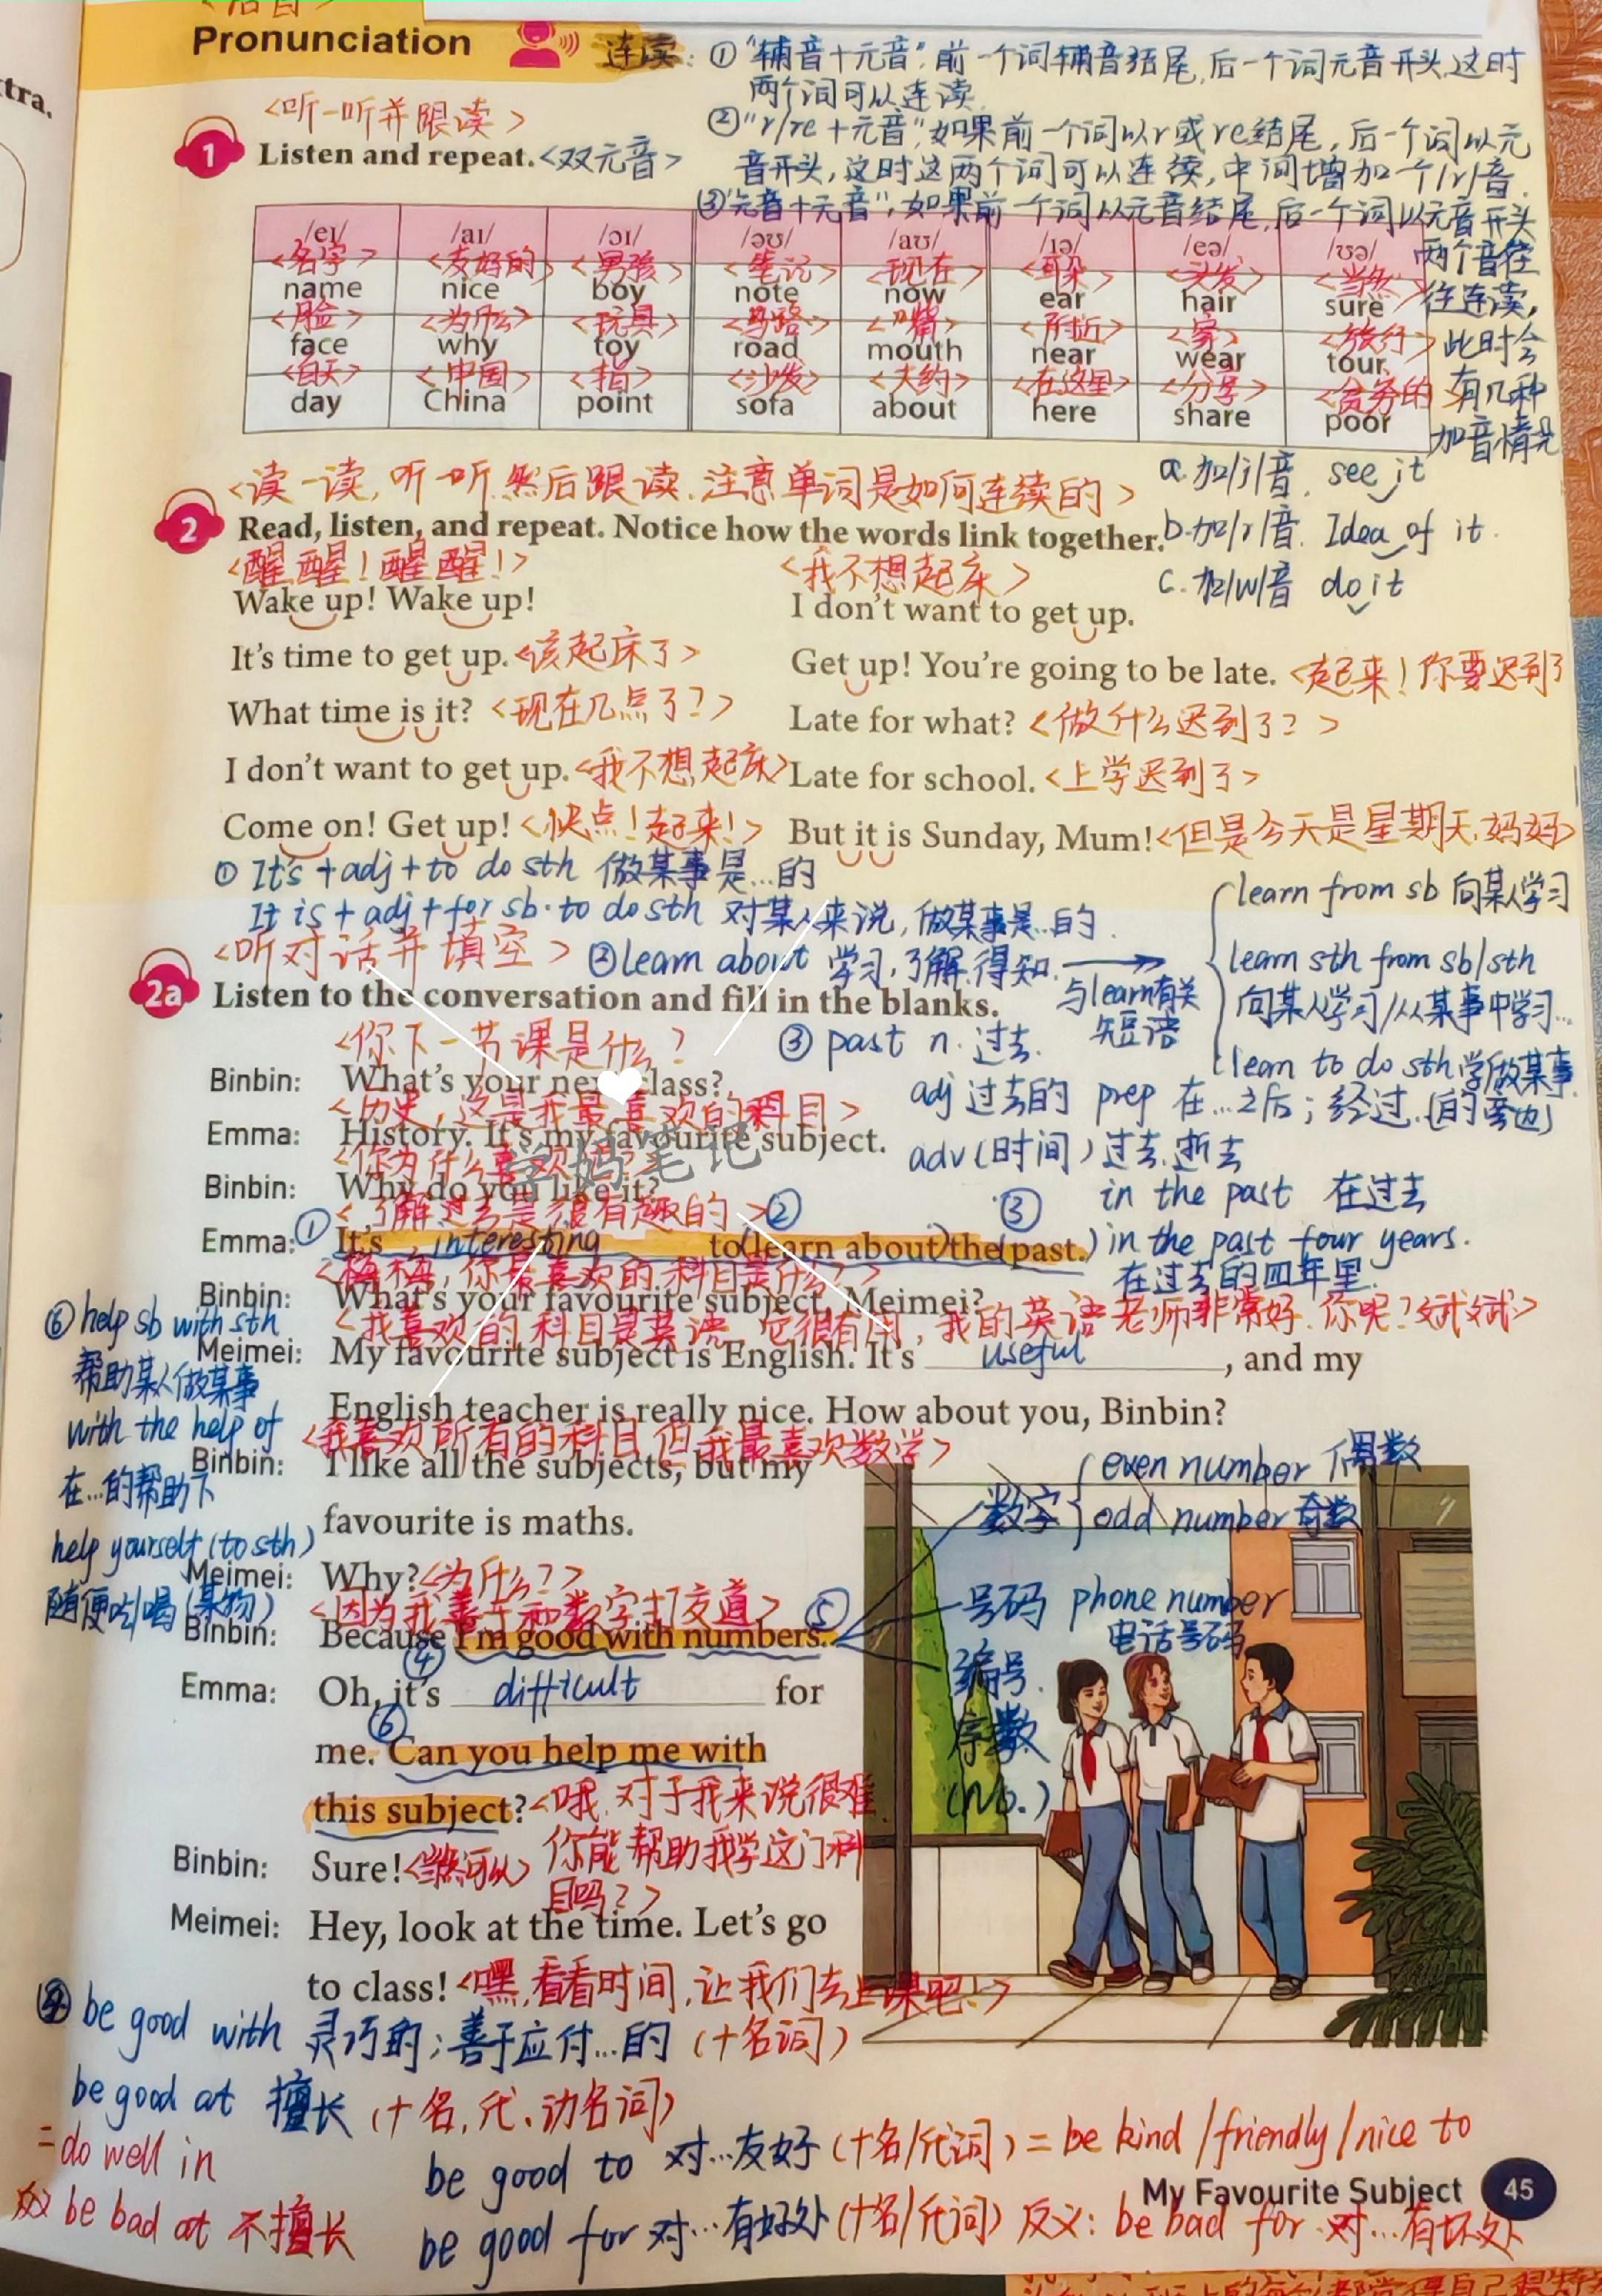 <后音>
Pronunciation
连读: ①“辅音+元音”, 前一个词辅音结尾, 后一个词元音开头, 这时
两个词可以连读.
<听一听并跟读>
②“r/re+元音”, 如果前一个词以r或re结尾, 后一个词以元
1 Listen and repeat. <双元音>
音开头, 这时这两个词可以连续, 中间增加一个/r/音.
③“元音+元音”, 如果前一个词以元音结尾, 后一个词以元音开头
两个音往
往连读,
此时会
有几种
加音情况
/eɪ/ /aɪ/ /ɔɪ/ /əʊ/ /aʊ/ /ɪə/ /eə/ /ʊə/
<名字> <友好的> <男孩> <笔记> <现在> <耳朵> <头发> <当然>
name nice boy note now ear hair sure
<脸> <为什么> <玩具> <马路> <嘴> <附近> <穿> <旅行>
face why toy road mouth near wear tour
<白天> <中国> <指> <沙发> <大约> <在这里> <分享> <贫穷的>
day China point sofa about here share poor
a.加/j/音. see it
b.加/r/音. Idea of it.
c.加/w/音 do it
<读一读, 听一听, 然后跟读. 注意单词是如何连续的>
2 Read, listen, and repeat. Notice how the words link together.
<醒醒! 醒醒!>
Wake up! Wake up!
It's time to get up. <该起床了>
What time is it? <现在几点了?>
I don't want to get up. <我不想起床>
Come on! Get up! <快点! 起来!>
<我不想起床>
I don't want to get up.
Get up! You're going to be late. <起来! 你要迟到了
Late for what? <做什么迟到了?>
Late for school. <上学迟到了>
But it is Sunday, Mum! <但是今天是星期天, 妈妈>
① It's +adj+to do sth 做某事是...的
It is + adj + for sb. to do sth 对某人来说, 做某事是...的.
②learn about 学习, 了解, 得知.
与learn有关
短语
learn from sb 向某人学习
learn sth from sb/sth
向某人学习/从某事中学习...
learn to do sth学做某事.
<听对话并填空>
2a Listen to the conversation and fill in the blanks.
③ past n. 过去.
adj 过去的 prep 在...之后; 经过.(的旁边)
adv(时间)过去.逝去
in the past 在过去
in the past four years.
在过去的四年里.
<你下一节课是什么?
Binbin: What's your next class?
<历史, 这是我最喜欢的科目>
Emma: History. It's my favourite subject.
学妈笔记
<你为什么喜欢
Binbin: Why do you like it?
<了解过去是很有趣的> ② ③
Emma: ① It's interesting to (learn about) the (past.)
<梅梅, 你最喜欢的科目是什么?>
Binbin: What's your favourite subject, Meimei?
<我喜欢的科目是英语, 它很有用, 我的英语老师非常好. 你呢? 斌斌>
Meimei: My favourite subject is English. It's useful, and my
English teacher is really nice. How about you, Binbin?
<我喜欢所有的科目但我最喜欢数学>
Binbin: I like all the subjects, but my
favourite is maths.
Meimei: Why? <为什么?>
<因为我善于和数字打交道> ⑤
Binbin: Because I'm good with numbers.
④
Emma: Oh, it's difficult for
⑥
me. Can you help me with
this subject? <哦, 对于我来说很难
你能帮助我学这门科
目吗?>
Binbin: Sure! <当然可以>
Meimei: Hey, look at the time. Let's go
to class! <嘿, 看看时间, 让我们去上课吧!>
⑥ help sb with sth
帮助某人做某事
with the help of
在...的帮助下
help yourself (to sth)
随便吃/喝(某物)
数字
even number 偶数
odd number 奇数
号码 phone number
电话号码
编号.
序数.
(No.)
④ be good with 灵巧的; 善于应付...的 (+名词)
be good at 擅长 (+名, 代, 动名词)
= do well in
反义 be bad at 不擅长
be good to 对...友好 (+名/代词) = be kind / friendly / nice to
be good for 对...有好处 (+名/代词) 反义: be bad for 对...有坏处
My Favourite Subject 45